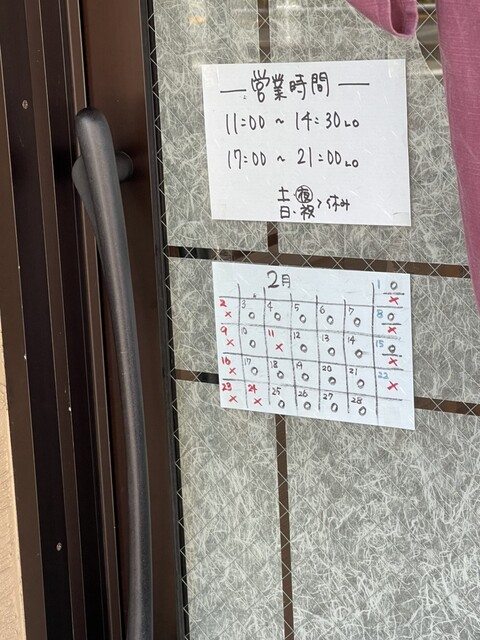 営業時間
11:00 ~ 14:30 LO
17:00 ~ 21:00 LO
土夜
日、祝 > 休み
2月
1 ○ ×
2 × 3 ○ 4 ○ 5 ○ 6 ○ 7 ○ 8 ○ ×
9 × 10 ○ 11 × 12 ○ 13 ○ 14 ○ 15 ○ ×
16 × 17 ○ 18 ○ 19 ○ 20 ○ 21 ○ 22 ×
23 × 24 × 25 ○ 26 ○ 27 ○ 28 ○